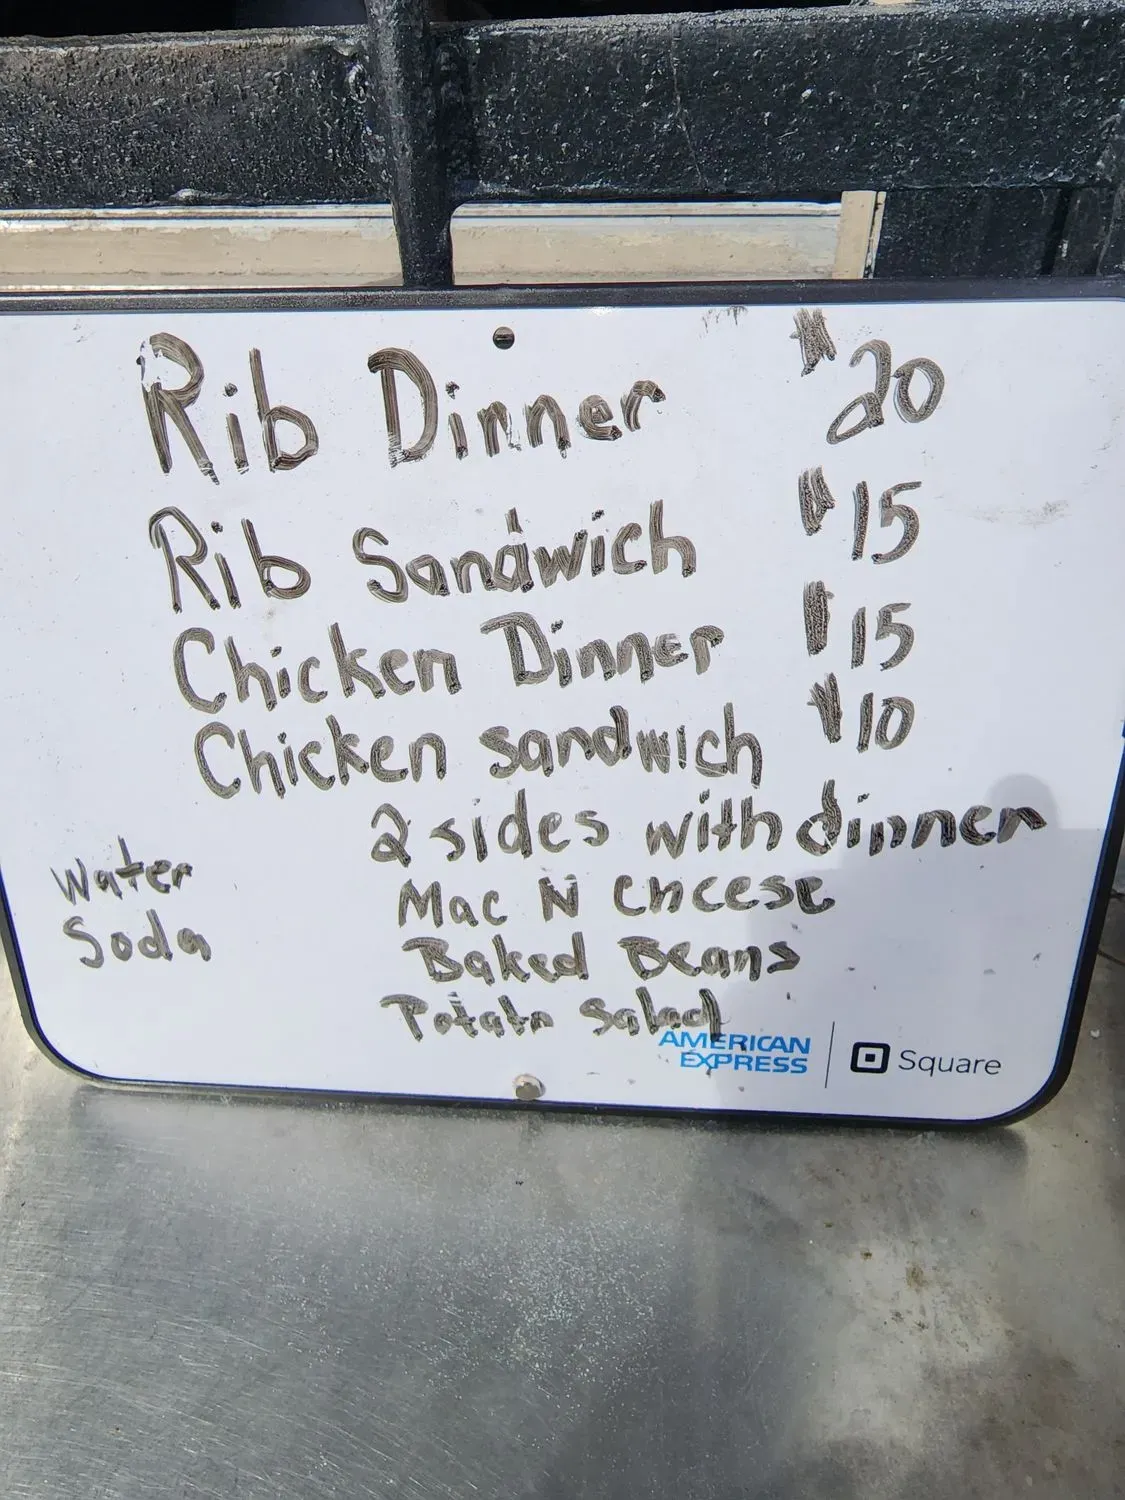 Rib Dinner $20
Rib Sandwich $15
Chicken Dinner $15
Chicken sandwich $10
2 sides with dinner
Water
Mac N Cheese
Soda
Baked Beans
Potato Salad
AMERICAN
EXPRESS
Square